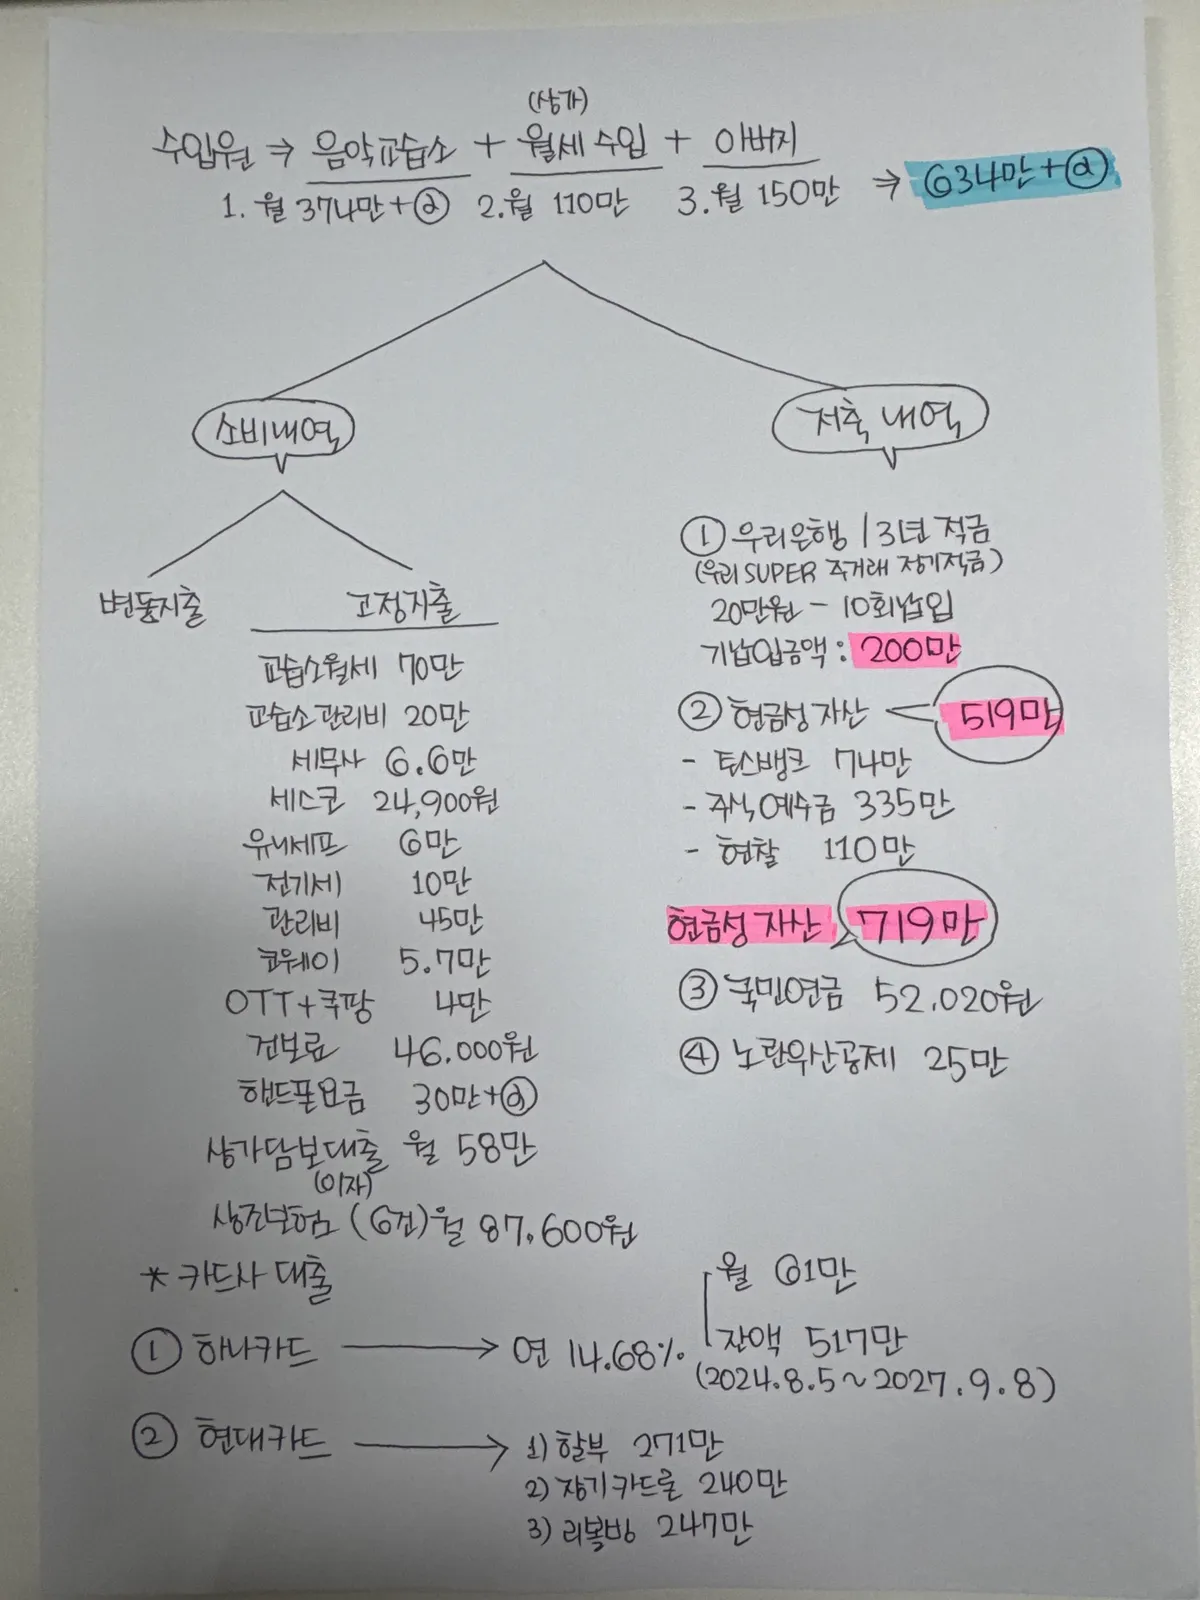 (상가)
수입원 ⇒ 음악교습소 + 월세 수입 + 아버지
1. 월 374만+ⓐ 2. 월 110만 3. 월 150만 ⇒ 634만+ⓐ
소비내역
저축 내역
변동지출
고정지출
교습소월세 70만
교습소관리비 20만
세무사 6.6만
세스코 24,900원
유니세프 6만
전기세 10만
관리비 45만
코웨이 5.7만
OTT+쿠팡 4만
건보료 46.000원
핸드폰요금 30만+ⓐ
상가담보대출 월 58만
(이자)
상진보험 (6건) 월 87,600원
① 우리은행 / 3년 적금
(우리SUPER 주거래 정기적금)
20만원 - 10회납입
기납입금액 : 200만
② 현금성 자산 519만
- 토스뱅크 74만
- 주식예수금 335만
- 현찰 110만
현금성 자산 719만
③ 국민연금 52.020원
④ 노란우산공제 25만
* 카드사 대출
① 하나카드 → 연 14.68%
월 61만
잔액 517만
(2024.8.5~2027.9.8)
② 현대카드 →
1) 할부 271만
2) 장기카드론 240만
3) 리볼빙 247만